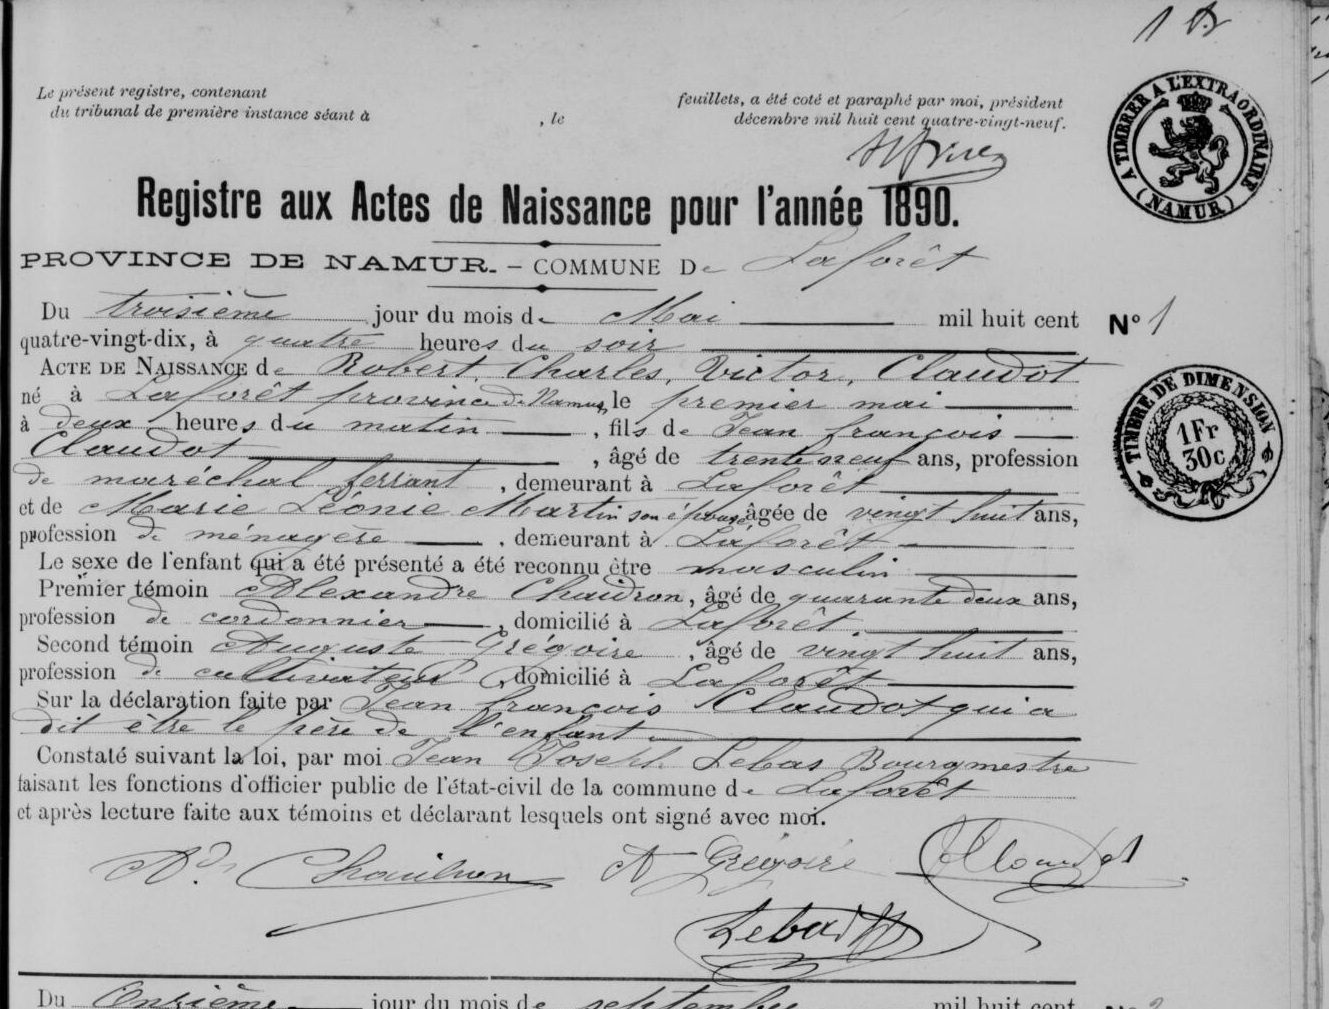 1
Le présent registre, contenant feuillets, a été coté et paraphé par moi, président
du tribunal de première instance séant à , le décembre mil huit cent quatre-vingt-neuf.
A TIMBRER A L'EXTRAORDINAIRE (NAMUR)
Registre aux Actes de Naissance pour l'année 1890.
PROVINCE DE NAMUR. – COMMUNE De Laforêt
Du troisième jour du mois de Mai mil huit cent
N° 1
quatre-vingt-dix, à quatre heures du soir
ACTE DE NAISSANCE de Robert, Charles, Victor, Claudot
né à Laforêt province de Namur, le premier mai
à deux heures du matin , fils de Jean françois
TIMBRE DE DIMENSION 1Fr 30c
Claudot , âgé de trente neuf ans, profession
de maréchal ferrant , demeurant à Laforêt
et de Marie Léonie Martin son épouse âgée de vingt huit ans,
profession de ménagère , demeurant à Laforêt
Le sexe de l'enfant qui a été présenté a été reconnu être masculin
Premier témoin Alexandre Chaidron, âgé de quarante deux ans,
profession de cordonnier , domicilié à Laforêt
Second témoin Auguste Grégoire , âgé de vingt huit ans,
profession de cultivateur , domicilié à Laforêt
Sur la déclaration faite par Jean françois Claudot qui a
dit être le père de l'enfant
Constaté suivant la loi, par moi Jean Joseph Lebas Bourgmestre
faisant les fonctions d'officier public de l'état-civil de la commune de Laforêt
et après lecture faite aux témoins et déclarant lesquels ont signé avec moi.
A Grégoire
Du Onzième jour du mois de septembre mil huit cent